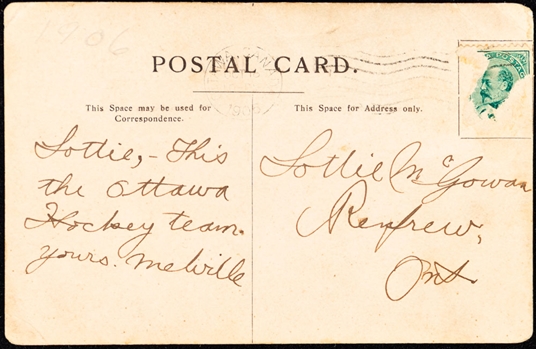 1906
POSTAL CARD.
This Space may be used for
Correspondence.
This Space for Address only.
Lottie, - This
the Ottawa
Hockey team.
yours. Melville
Lottie McGowan
Renfrew,
Ont.